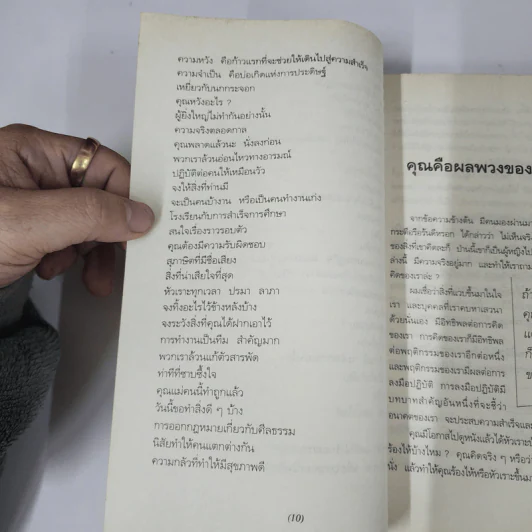 ความหวัง คือก้าวแรกที่จะช่วยให้เดินไปสู่ความสำเร็จ
ความจำเป็น คือบ่อเกิดแห่งการประดิษฐ์
เหยี่ยวกับนกกระจอก
คุณหวังอะไร ?
ผู้ยิ่งใหญ่ไม่ทำกันอย่างนั้น
ความจริงตลอดกาล
คุณพลาดแล้วนะ นั่งลงก่อน
พวกเราล้วนอ่อนไหวทางอารมณ์
ปฏิบัติต่อคนให้เหมือนวัว
จงให้สิ่งที่ท่านมี
จะเป็นคนบ้างาน หรือเป็นคนทำงานเก่ง
โรงเรียนกับการสำเร็จการศึกษา
สนใจเรื่องราวรอบตัว
คุณต้องมีความรับผิดชอบ
สุภาษิตที่มีชื่อเสียง
สิ่งที่น่าเสียใจที่สุด
หัวเราะทุกเวลา ปรมา ลาภา
จงทิ้งอะไรไว้ข้างหลังบ้าง
จงระวังสิ่งที่คุณได้ฝากเอาไว้
การทำงานเป็นทีม สำคัญมาก
พวกเราล้วนแก้ตัวสารพัด
ท่าทีที่ซาบซึ้งใจ
คุณแม่คนนี้ทำถูกแล้ว
วันนี้ขอทำสิ่งดี ๆ บ้าง
การออกกฎหมายเกี่ยวกับศีลธรรม
นิสัยทำให้คนแตกต่างกัน
ความกลัวที่ทำให้มีสุขภาพดี
(10)
คุณคือผลพวงของ
จากข้อความข้างต้น มีคนมองผ่านมา
กระดี่เรือวันดีหรอก ได้กล่าวว่า ไม่เห็นจริง
ของสิ่งที่เขาคิดละก็ ป่านนี้เขาก็เป็นผู้หญิงไป
ล่างนี้ มีความจริงอยู่มาก และทำให้เราถาม
คิดของเราล่ะ ?
ผมเชื่อว่าสิ่งที่แวบขึ้นมาในใจ
เรา และบุคคลที่เราคบหาเสวนา
ด้วยนั่นเอง มีอิทธิพลต่อการคิด
ของเรา การคิดของเราก็มีอิทธิพล
ต่อพฤติกรรมของเราอีกต่อหนึ่ง
และพฤติกรรมของเรามีผลต่อการ
ลงมือปฏิบัติ การลงมือปฏิบัติมี
บทบาทสำคัญอันหนึ่งที่จะชี้ว่า
อนาคตของเรา จะประสบความสำเร็จและ
คุณมีโอกาสไปดูหนังแล้วได้หัวเราะ
ร้องไห้บ้างไหม ? คุณคิดจริง ๆ หรือว่า
นั่ง แล้วทำให้คุณร้องไห้หรือหัวเราะขึ้นมา